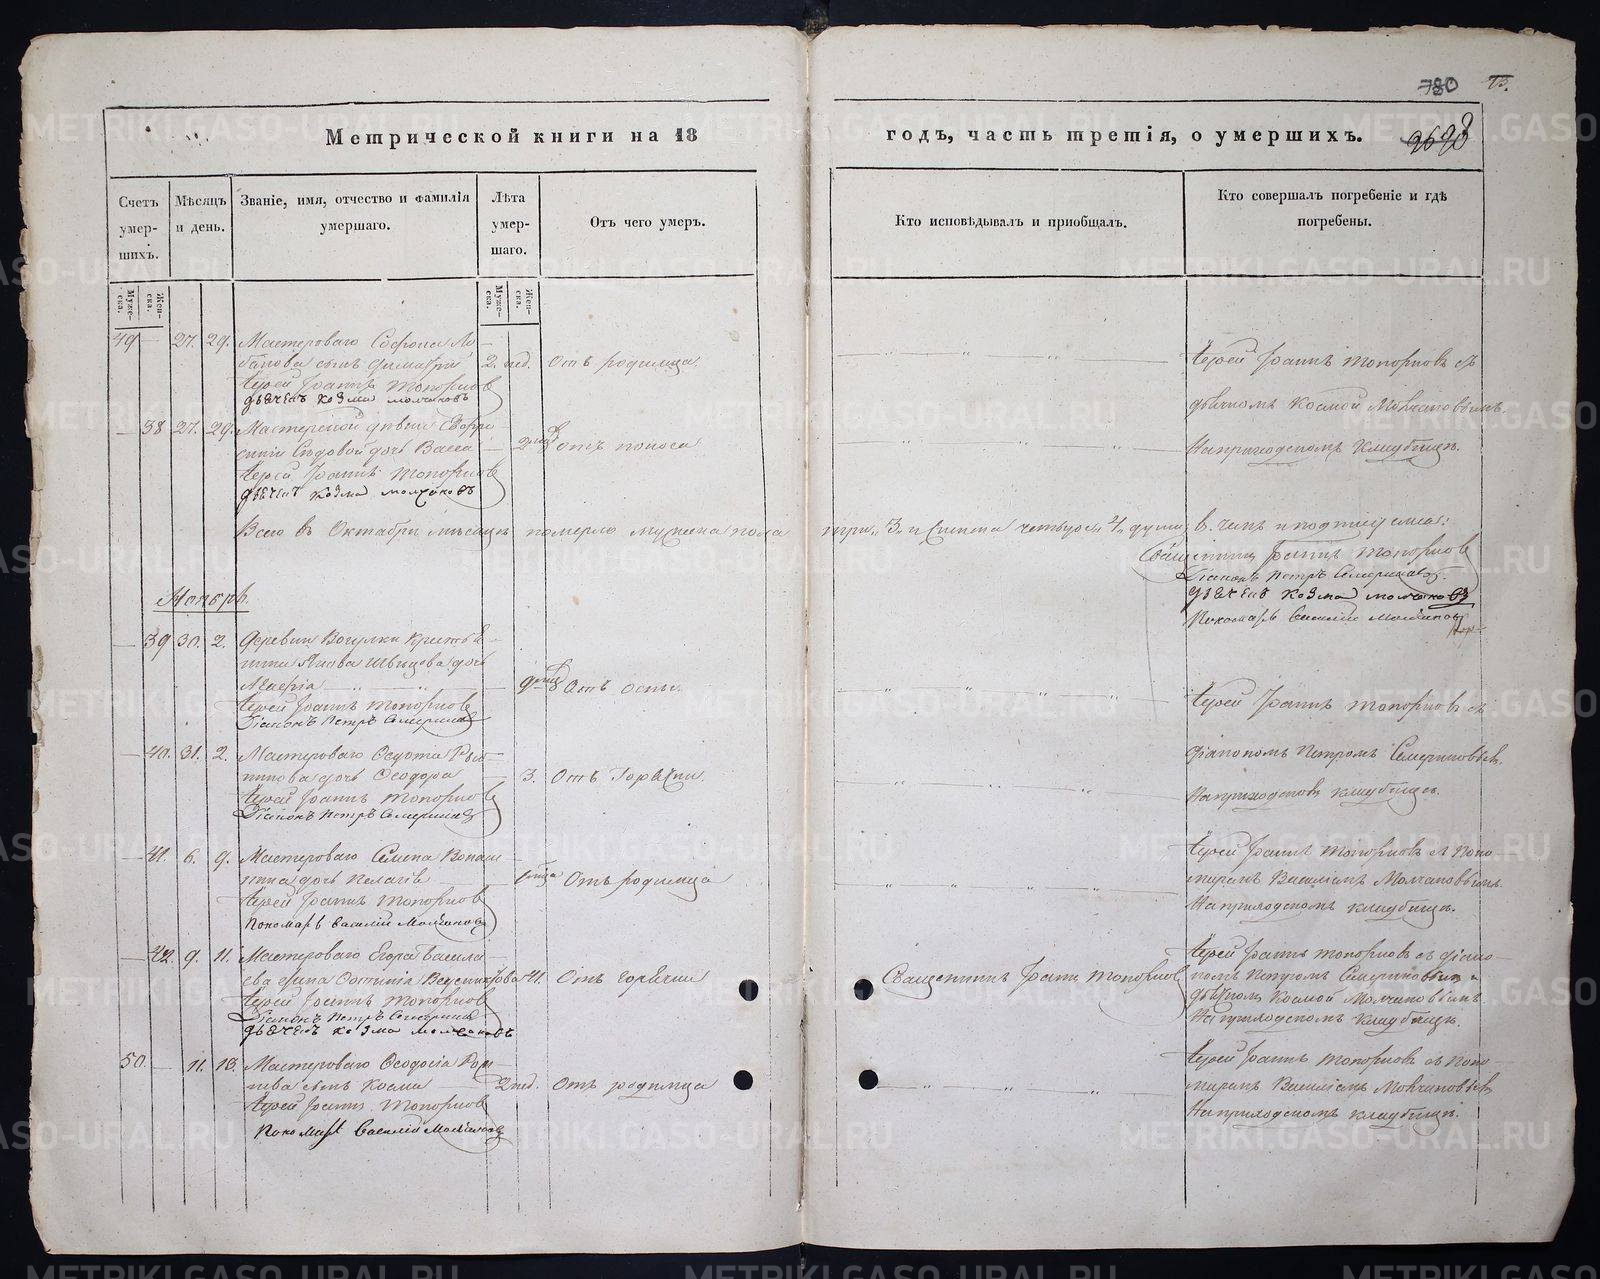 780 73.
Метрической книги на 18 годъ, часть третія, о умершихъ.
Счетъ умер-шихъ.
Мѣсяцъ и день.
Званіе, имя, отчество и фамилія умершаго.
Лѣта умер-шаго.
Отъ чего умеръ.
Кто исповѣдывалъ и приобщалъ.
Кто совершалъ погребеніе и гдѣ погребены.
Муже-ска.
Жен-ска.
Муже-ска.
Жен-ска.
49 — 27. 29. Мастероваго Софона Ло-
банова сынъ Димитрій 2. нед. Отъ родимца
Іерей Іоаннъ Топорковъ
дьячекъ Козма Молчановъ
Іерей Іоаннъ Топорковъ съ
дьячкомъ Космой Молчановымъ.
— 38 27. 29. Мастерской
дочь Васса 2 отъ поноса
Іерей Іоаннъ Топорковъ
дьячекъ Козма Молчановъ
На приходскомъ кладбищѣ.
Всего въ Октябрѣ мѣсяцѣ померло мужеска пола три „3„ и женска четыре „4„ души, въ чемъ и подписуемся:
Священникъ Іоаннъ Топорковъ
Діаконъ Петръ Семериковъ
дьячекъ Козма Молчановъ
Пономарь Василій Молчановъ
Ноябрь.
— 39 30. 2. Деревни Вогулки
Швецова дочь
Іерей Іоаннъ Топорковъ
Діаконъ Петръ Семериковъ
Отъ оспы
Іерей Іоаннъ Топорковъ съ
— 40. 31. 2. Мастероваго
дочь Ѳеодора — 3. Отъ Горячки
Іерей Іоаннъ Топорковъ
Діаконъ Петръ Семериковъ
діакономъ Петромъ Семериковымъ,
На приходскомъ кладбищѣ.
— 41. 6. 9. Мастероваго Семена
дочь Пелагія Отъ родимца
Іерей Іоаннъ Топорковъ
Пономарь Василій Молчановъ
Іерей Іоаннъ Топорковъ съ Поно-
маремъ Василіемъ Молчановымъ.
На приходскомъ кладбищѣ.
— 42. 9. 11. Мастероваго Егора Василь-
ева жена 41. Отъ горячки
Іерей Іоаннъ Топорковъ
Діаконъ Петръ Семериковъ
дьячекъ Козма Молчановъ
Священникъ Іоаннъ Топорковъ
Іерей Іоаннъ Топорковъ съ діако-
номъ Петромъ Семериковымъ и
дьячкомъ Космой Молчановымъ
На приходскомъ кладбищѣ.
50. — 11. 13. Мастероваго Ѳеодосія
сынъ Косма 2 нед. Отъ родимца
Іерей Іоаннъ Топорковъ
Пономарь Василій Молчановъ
Іерей Іоаннъ Топорковъ съ Поно-
маремъ Василіемъ Молчановымъ
На приходскомъ кладбищѣ.
METRIKI.GASO-URAL.RU